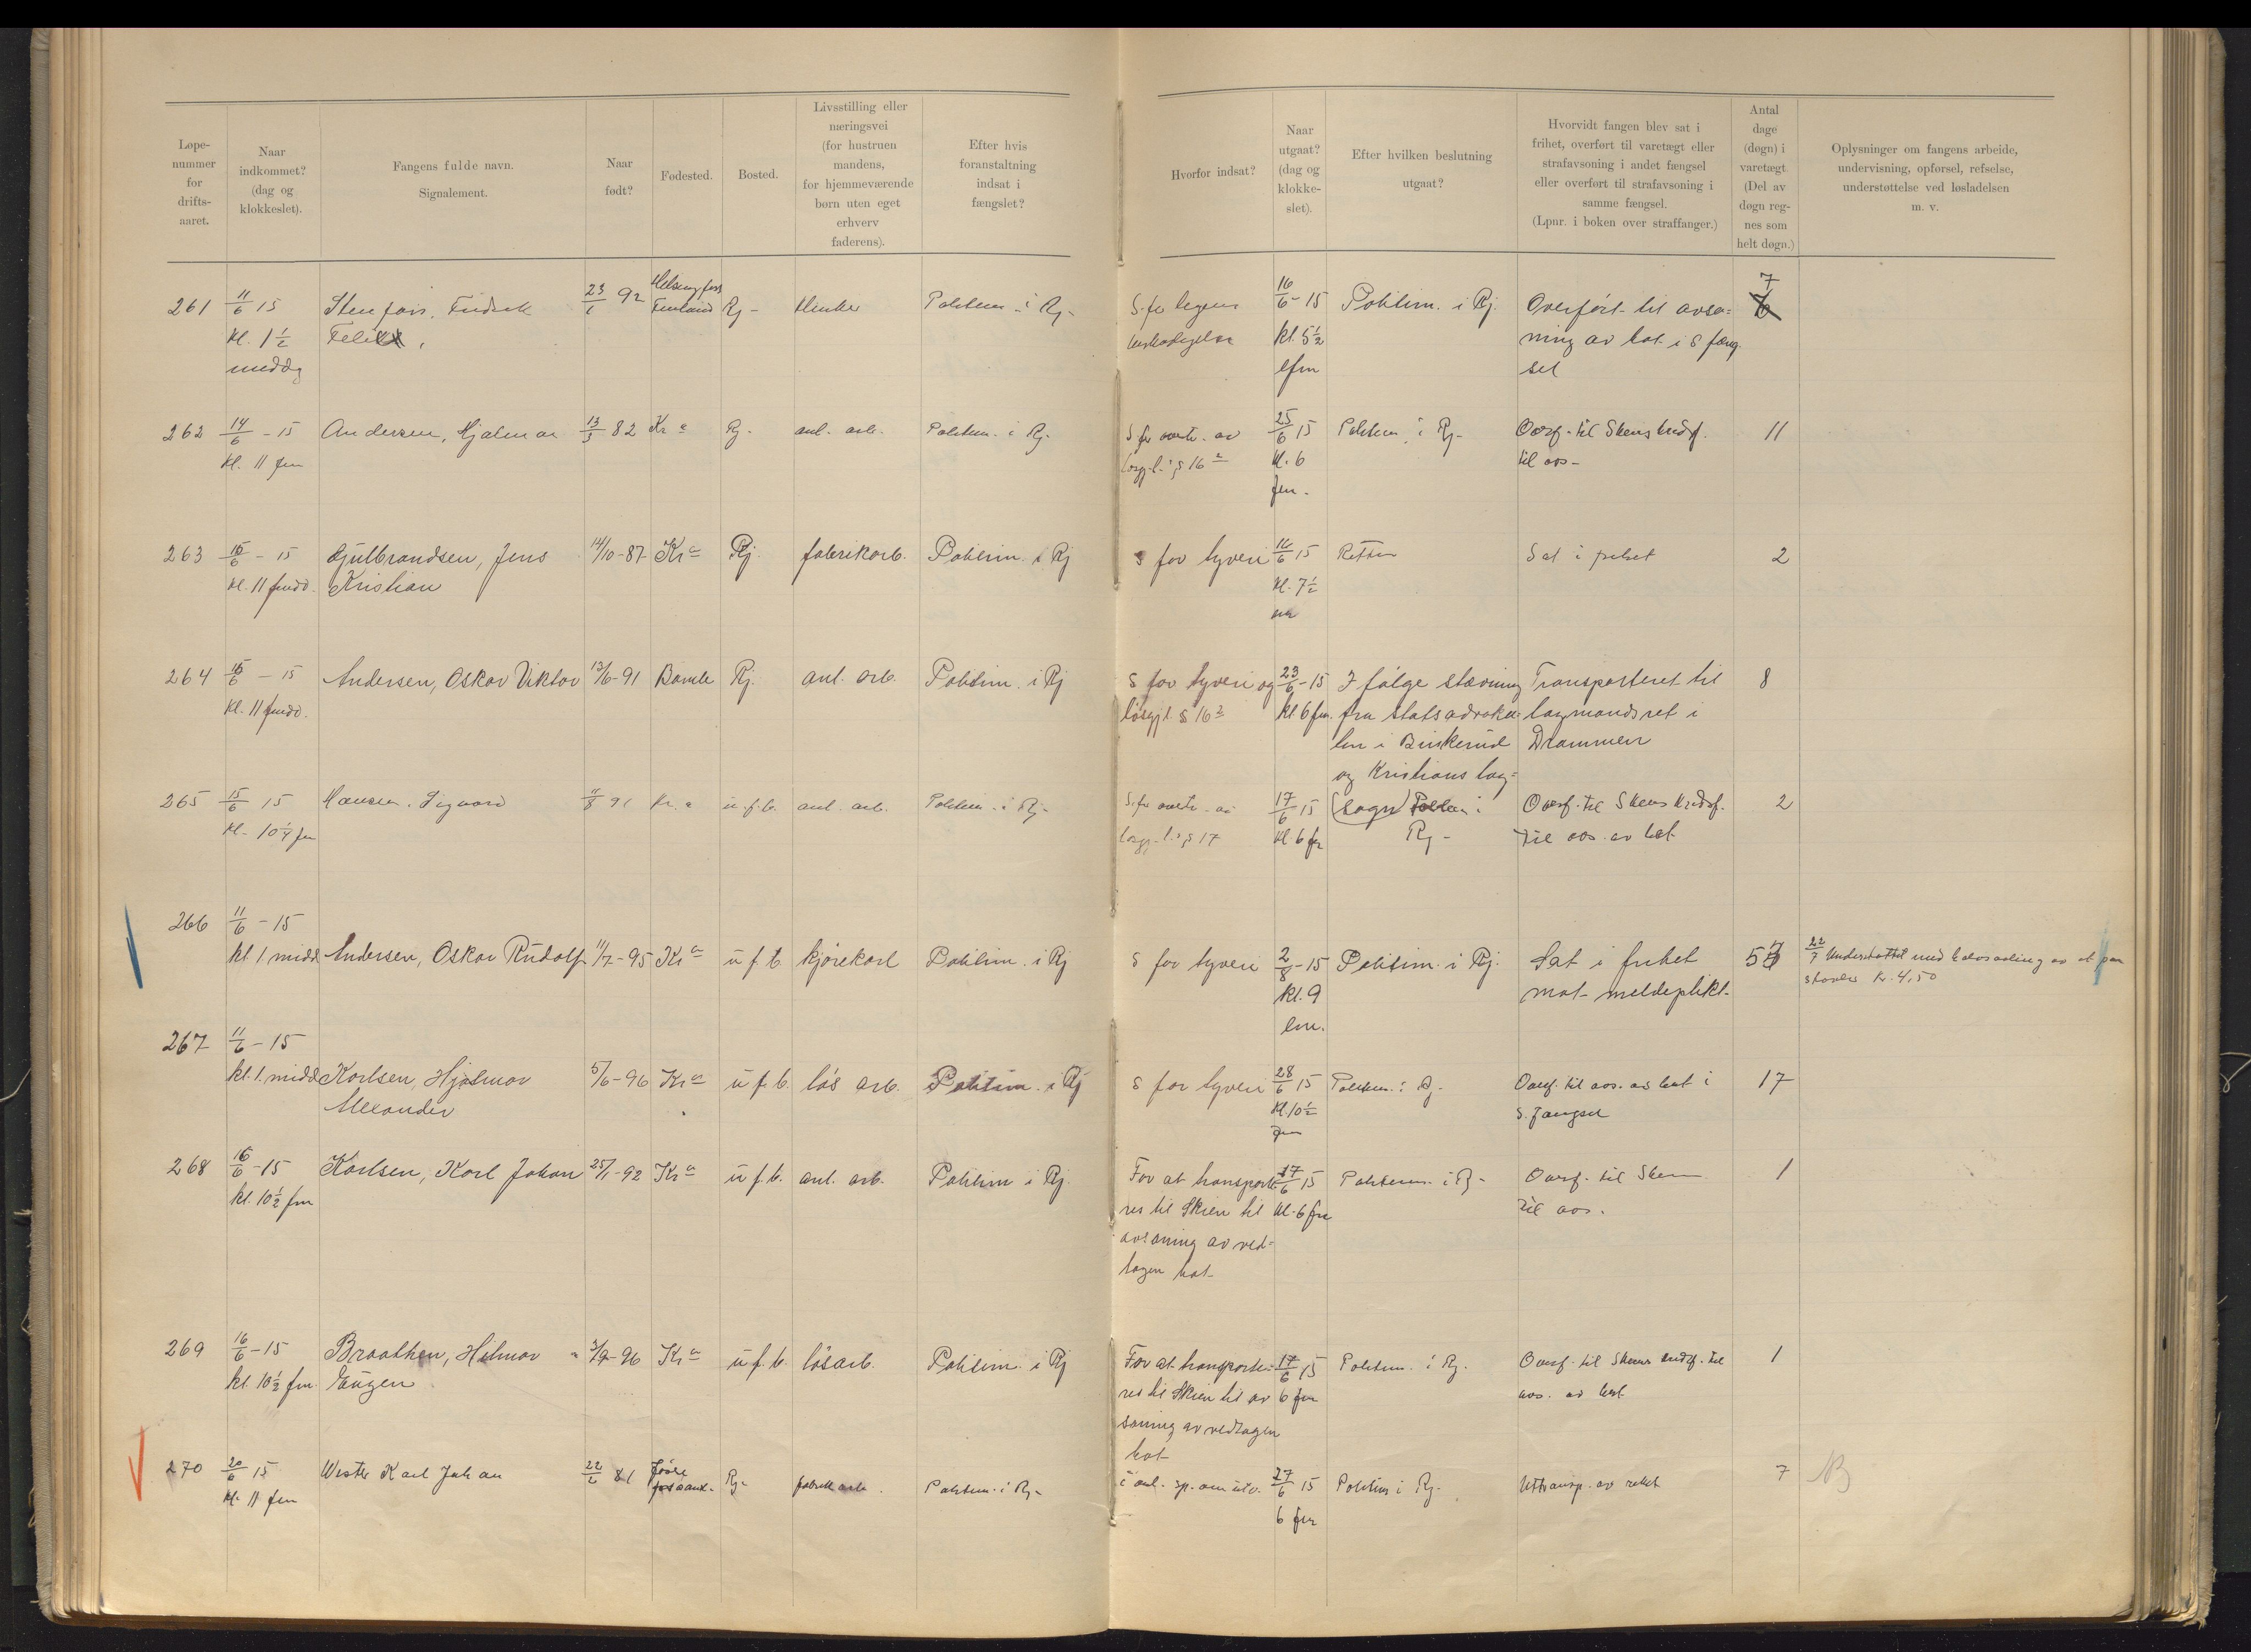 Løpe-
nummer
for
drifts-
aaret.
Naar
indkommet?
(dag og
klokkeslet).
Fangens fulde navn.
Signalement.
Naar
født?
Fødested.
Bosted.
Livsstilling eller
næringsvei
(for hustruen
mandens,
for hjemmeværende
børn uten eget
erhverv
faderens).
Efter hvis
foranstaltning
indsat i
fængslet?
Hvorfor indsat?
Naar
utgaat?
(dag og
klokke-
slet).
Efter hvilken beslutning
utgaat?
Hvorvidt fangen blev sat i
frihet, overført til varetægt eller
strafavsoning i andet fængsel
eller overført til strafavsoning i
samme fængsel.
(Lpnr. i boken over straffanger.)
Antal
dage
(døgn) i
varetægt.
(Del av
døgn reg-
nes som
helt døgn.)
Oplysninger om fangens arbeide,
undervisning, opførsel, refselse,
understøttelse ved løsladelsen
m. v.
261 11/6 15 23/1 92 Helsingfors Finland Rj - Politim. i Rj - S. for legems 16/6 - 15 Politim. i Rj. Overført til avso= 7
kl. 1½ kl. 5½ ning av bot. i S fæng
middg efm sel
262 14/6 - 15 Andersen, Hjalmar 13/3 82 Kr a Rj. anl. arb. Politim. i Rj - S for overtr. av 25/6 15 Politim i Rj - Overf. til Skens kredsf. 11
kl. 11 fm løsgj. l. § 16 kl. 6 til avs -
fm.
263 15/6 - 15 Gulbrandsen, Jens 14/10 - 87 Kr a Rj. fabrikarb. Politim. i Rj S for tyveri 16/6 15 Retten Sat i frihet 2
kl. 11 fmdd. Kristian kl. 7½
264 15/6 - 15 Andersen, Oskar Viktor 13/6 - 91 Bamle Rj. anl. arb. Politim. i Rj S for tyveri og 23/6 - 15 I følge stevning Transporteret til 8
kl. 11 fmdd. løsgjl. § 16 kl 6 fm. fra statsadvoka= lagmandsret i
ten i Buskerud Drammen
og Kristians lag=
265 15/6 15 Hansen, Sigvard 11/8 91 Kr. a u. f. b. anl. arb. Politim. i Rj - S. for overtr. av 17/6 15 (sogn) Politim i Overf. til Skens kredsf. 2
kl. 10¼ fm løsgj. l. § 17 kl 6 fm Rj - til avs. av bot
266 11/6 - 15
kl 1 midd Andersen, Oskar Rudolf 11/7 - 95 Kr a u f. b. kjørekarl Politim. i Rj S for tyveri 2/8 - 15 Politim. i Rj. Sat i frihet 53 22/7 Understøttet med halvsaaling av et par
kl. 9 mot meldeplikt. støvler kr. 4,50
em.
267 11/6 - 15
kl. 1. midd Karlsen, Hjalmar 5/6 - 96 Kr a u f. b. løs arb. Politim. i Rj S for tyveri 28/6 15 Politim. i Rj. Overf. til avs. av bot i 17
Alexander kl. 10½ s. fængsel
fm
268 16/6 - 15 Karlsen, Karl Johan 25/1 - 92 Kr a u f. b. anl. arb. Politim i Rj. For at transporte 17/6 15 Politim. i Rj - Overf. til Skien 1
kl. 10½ fm res til Skien til kl. 6 fm til avs.
avsoning av ved=
tagen bot
269 16/6 - 15 Braathen, Hilmar 3/9 - 96 Kr a u f. b. løsarb. Politim. i Rj For at transporte= 17/6 15 Politim. i Rj. Overf. til Skiens kredsf. til 1
kl. 10½ fm. Eugen res til Skien til av 6 fm avs. av bot
soning av vedtagen
bot
270 20/6 15 Karl Johan 22/2 81 Rj - fabrikarb. Politim. i Rj - i anl. sp. om utv. 27/6 15 Politim i Rj - Uttransp. av riket 7
kl. 11 fm 6 fm